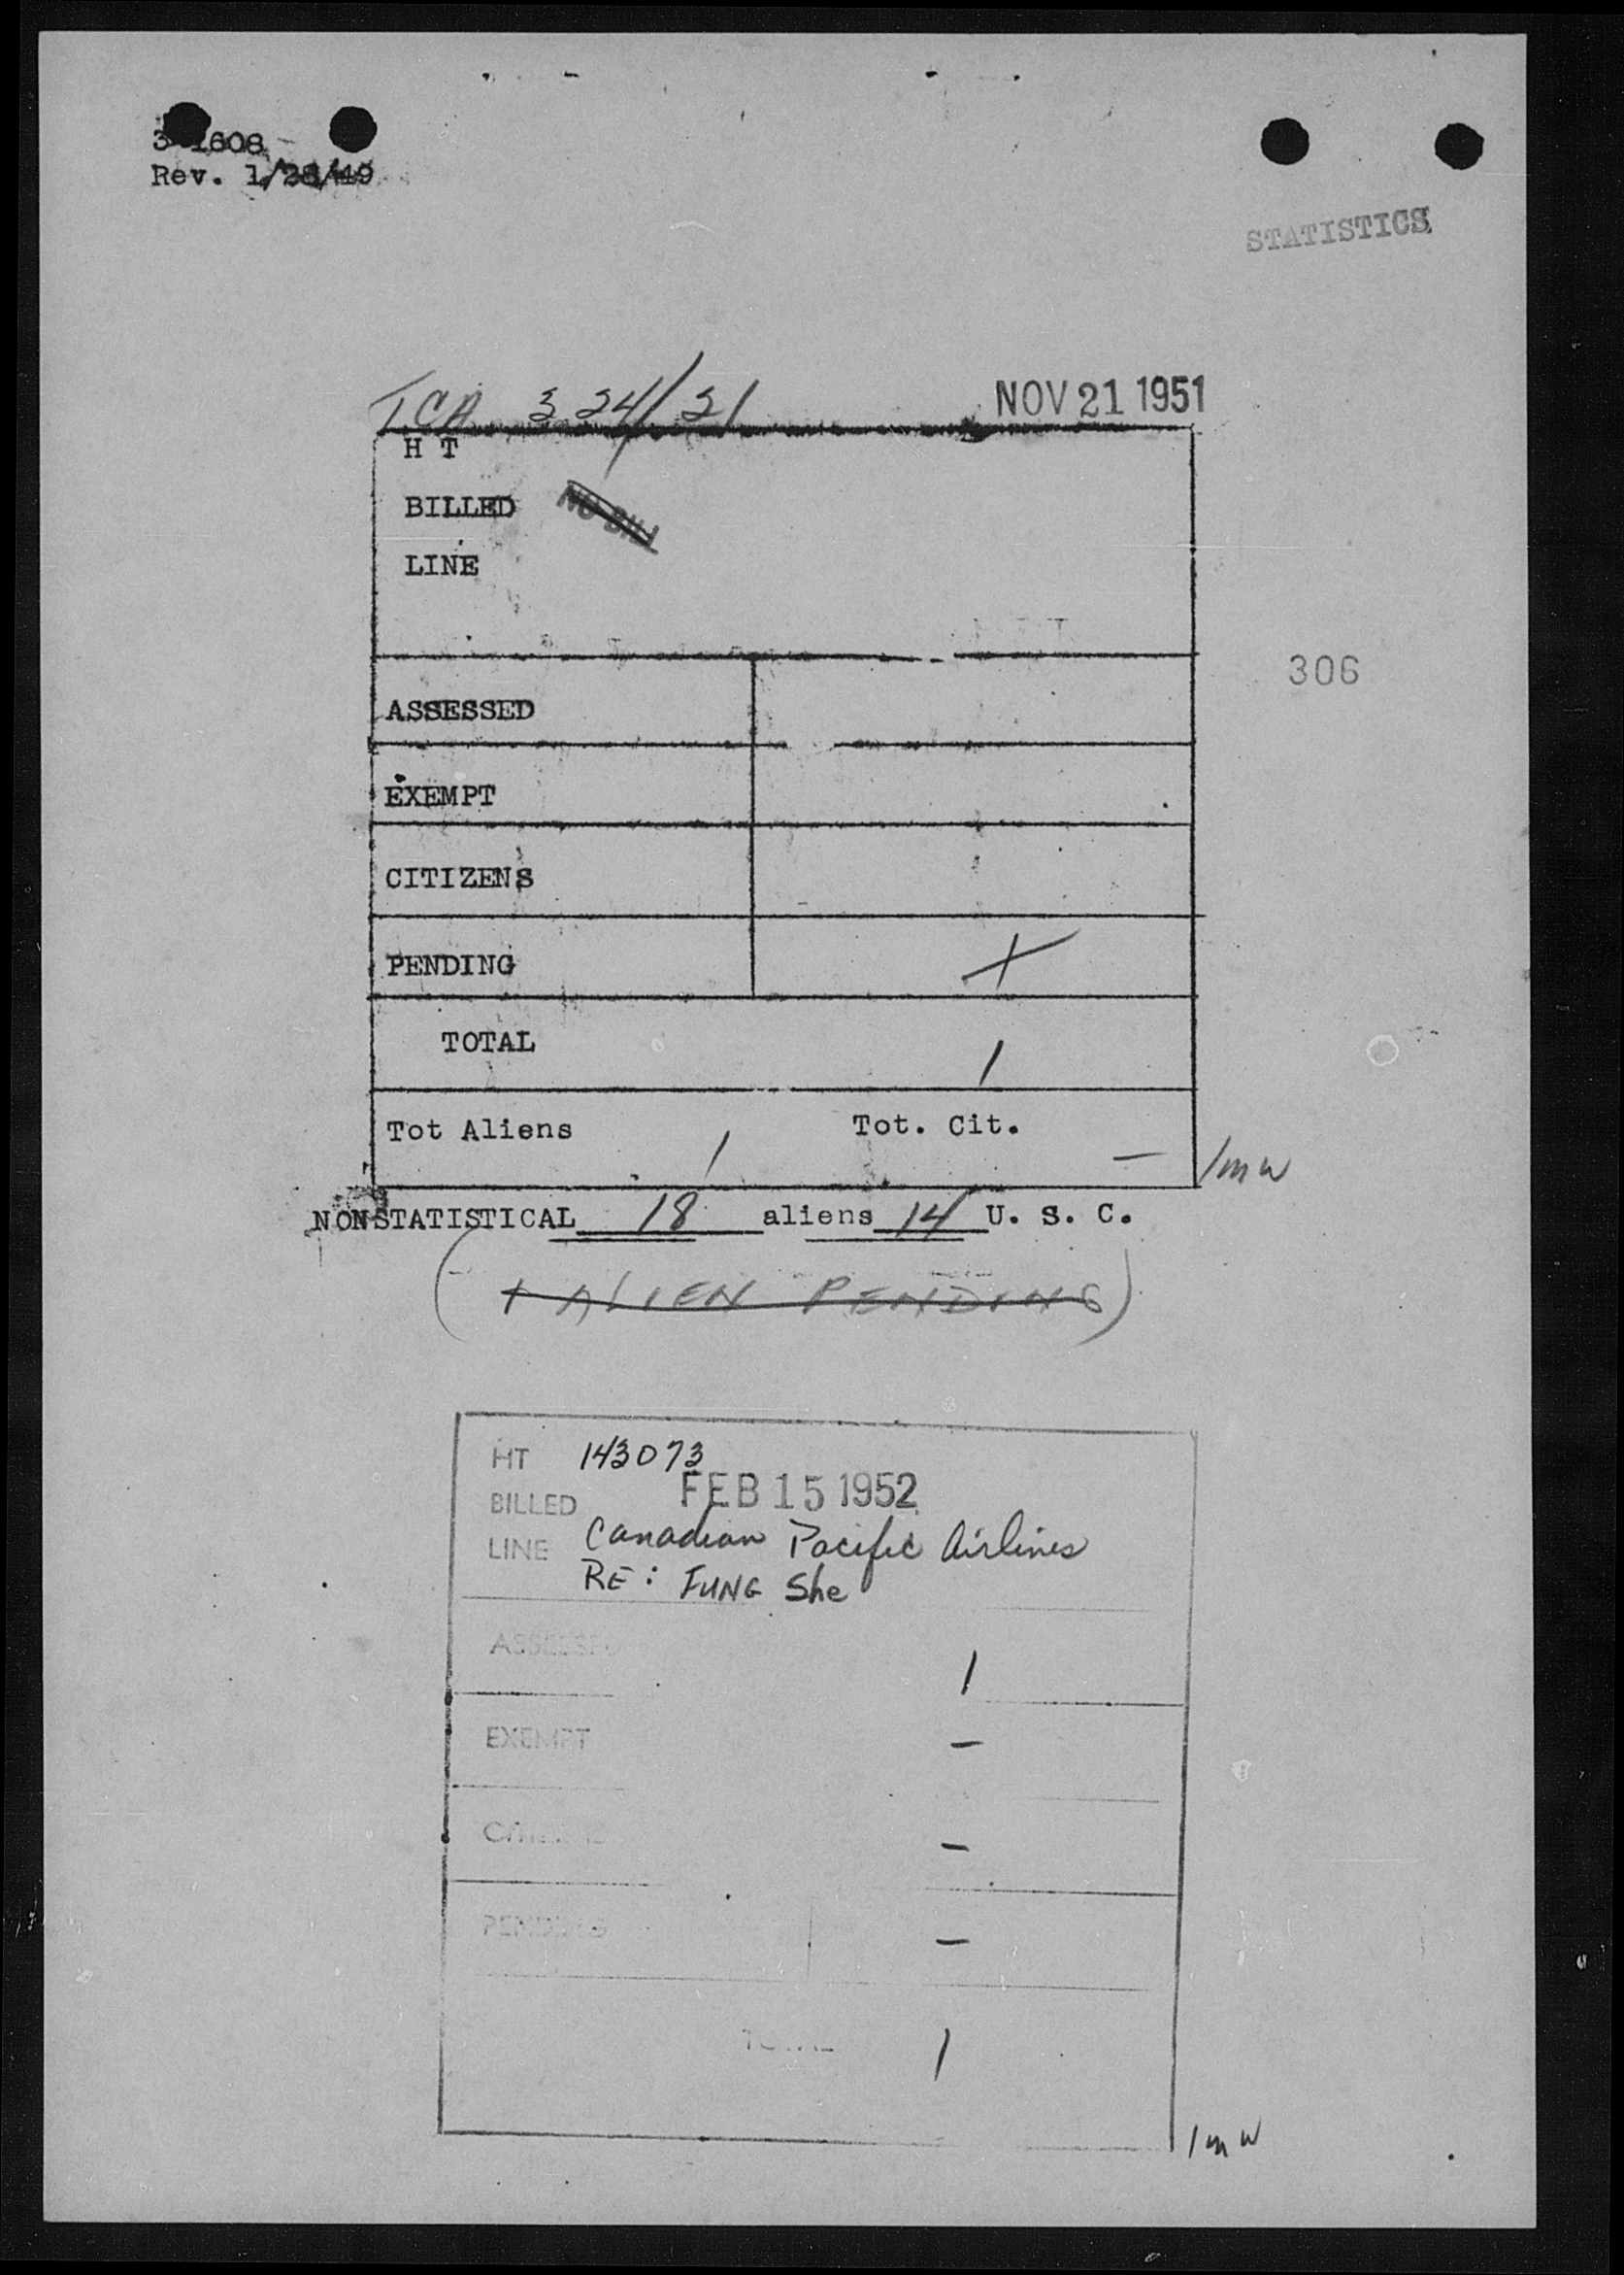 3-1608
Rev. 1/28/49
STATISTICS
TCA 324/21 NOV 21 1951
H T
BILLED NO BILL
LINE
306
ASSESSED
EXEMPT
CITIZENS
PENDING X
TOTAL 1
Tot Aliens 1 Tot. Cit. — 1mw
NONSTATISTICAL 18 aliens 14 U. S. C.
(1 ALIEN PENDING)
HT 143073
BILLED FEB 15 1952
LINE Canadian Pacific Airlines
RE: FUNG She
ASSESSED 1
EXEMPT –
CITIZENS –
PENDING –
TOTAL 1
1mw